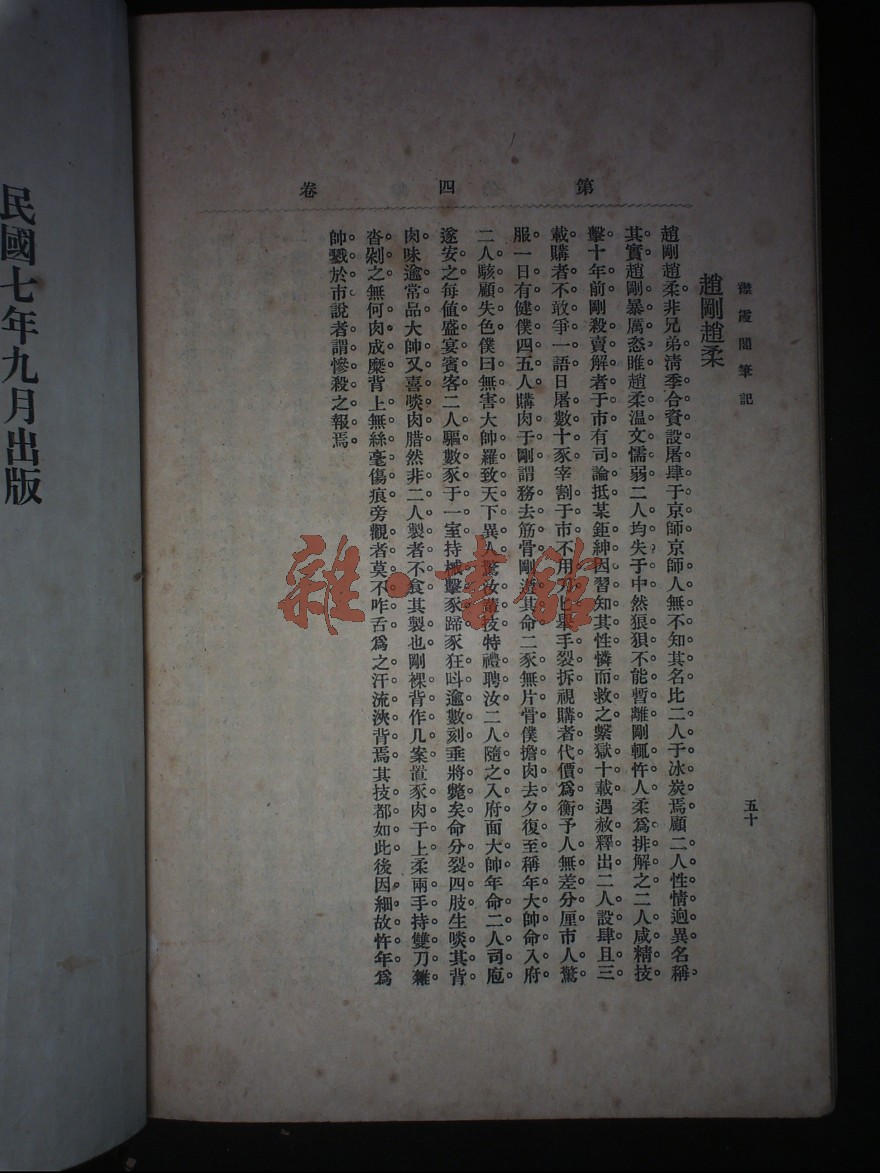 第四卷
襟霞閣筆記
五十
趙剛趙柔
趙剛趙柔。非兄弟。清季合資設屠肆于京師。京師人無不知其名。比二人于冰炭焉。顧二人性情逈異名稱。
其實趙剛暴厲恣睢。趙柔溫文儒弱。二人均失于中。然狼狽不能暫離。剛輒忤人。柔爲排解之。二人咸精技
擊。十年前剛殺賣解者于市。有司論抵。某鉅紳因習知其性。憐而救之。繫獄十載。遇赦釋出。二人設肆且三
載。購者不敢爭一語。日屠數十豕。宰割于市。不用刀匕。舉手裂拆。視購者代價爲衡。予人無差分厘。市人驚
服。一日有健僕四五人。購肉于剛。謂務去筋骨。剛遊其命。二豕無片骨。僕擔肉去。夕復至。稱年大帥命入府。
二人駭顧失色。僕曰。無害。大帥羅致天下異人。驚汝藝技。特禮聘汝。二人隨之入府。面大帥年。命二人司庖。
遂安之。每值盛宴賓客。二人驅數豕于一室。持械擊豕蹄。豕狂呌。逾數刻垂將斃矣。命分裂四肢。生啖其背
肉。味逾常品。大帥又喜啖肉腊。然非二人製者不食。其製也。剛裸背作几案。置豕肉于上。柔兩手持雙刀。雜
沓剁之。無何肉成糜。背上無絲毫傷痕。旁觀者莫不咋舌。爲之汗流浹背焉。其技都如此。後因細故忤年。爲
帥戮於市。說者謂慘殺之報焉。
民國七年九月出版
雜·書館